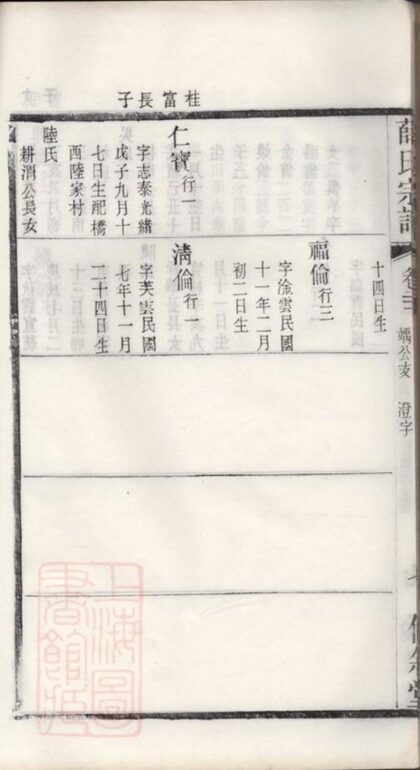 薛氏宗譜
卷三
澄字
桂富長子
仁寶行一
字志泰光緒
戊子九月十
七日生配橋
西陸家村
陸氏
耕渭公長女
十四日生
福倫行三
字淦雲民國
十一年二月
初二日生
清倫行一
字芙雲民國
七年十一月
二十四日生
上海圖
書館藏